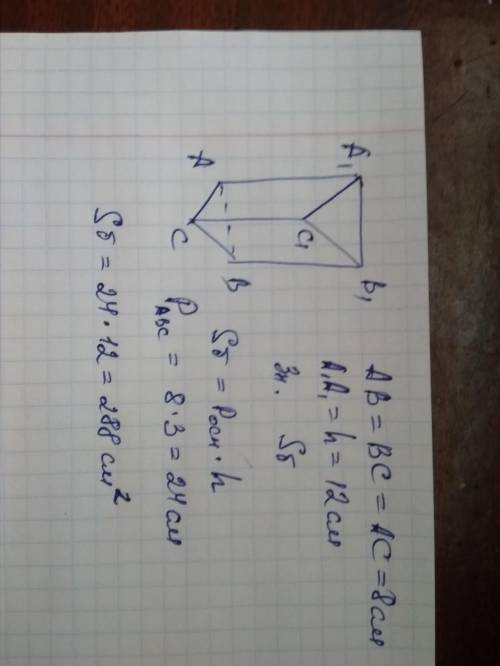 A₁
B₁
C₁
A
B
C
AB = BC = AC = 8 см
A₁A₁ = h = 12 см
Зн. Sб
Sб = Pосн · h
P_ABC = 8 · 3 = 24 см
Sб = 24 · 12 = 288 см²